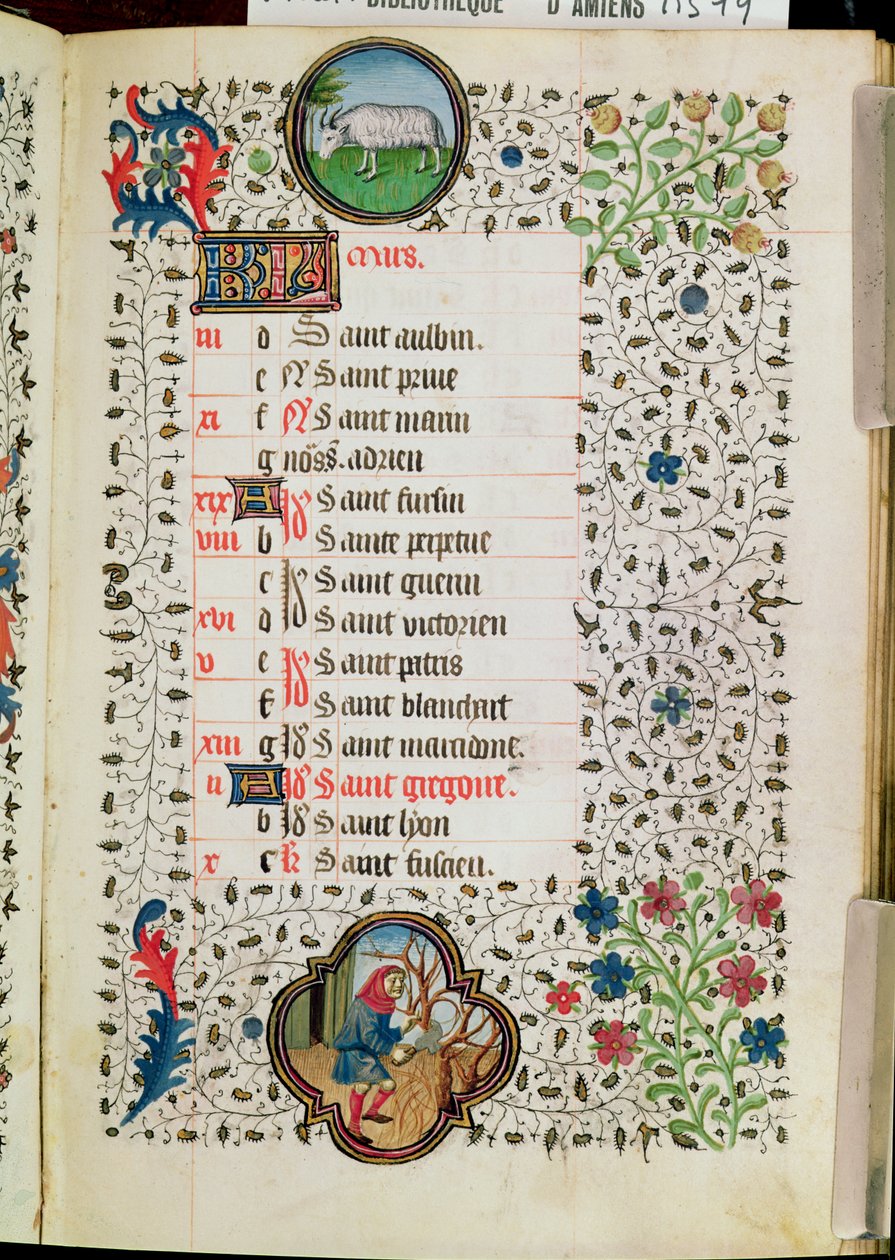 BIBLIOTHEQUE D'AMIENS
KL Mars.
iii d Saint aulbin.
e N Saint priue
xi f N Saint marin
g nos̃. adrien
xix A Id Saint fursin
viii b Sainte perpetue
c Id Saint guerin
xvi d Saint victorien
v e Id Saint patris
f Saint blanchart
xiii g Id Saint macidone.
ii A Id Saint gregoire.
b Id Saint lyon
x c k Saint fuscien.